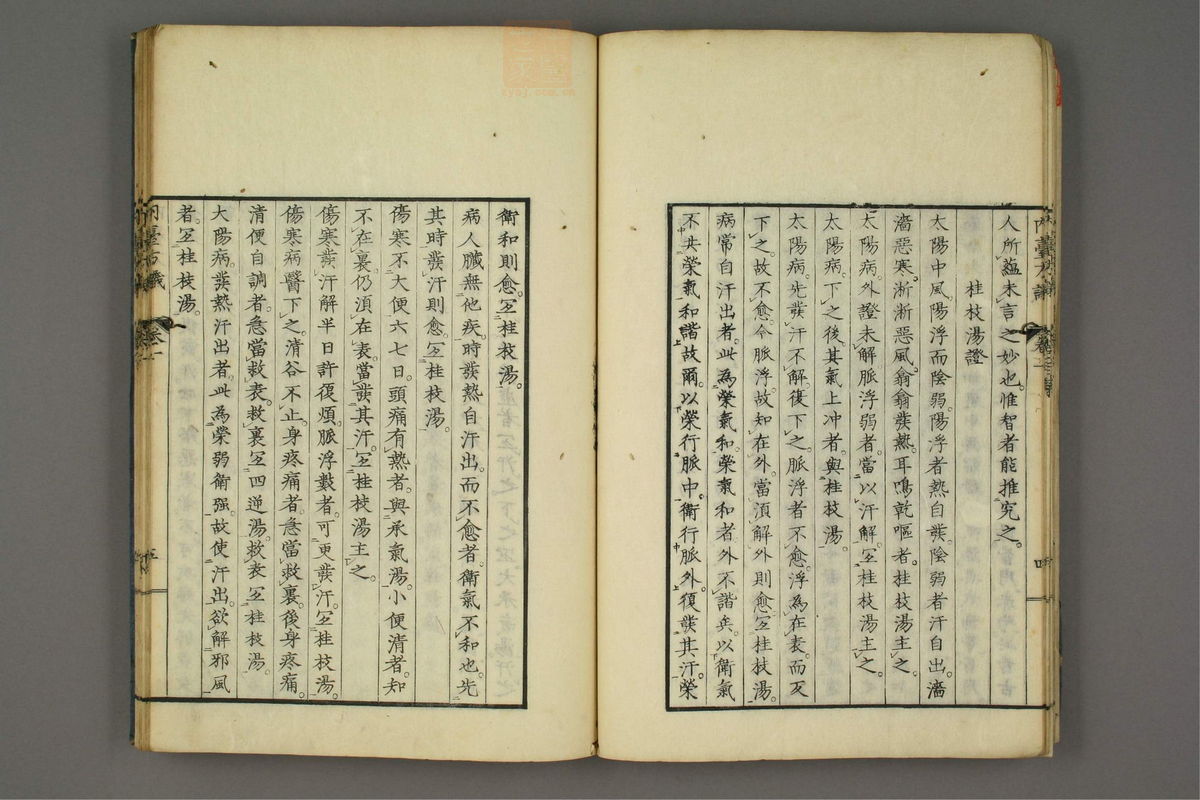 人所蘊未言之妙也。惟智者能推究之。
桂枝湯證
太陽中風。陽浮而陰弱。陽浮者熱自發。陰弱者汗自出。濇
濇惡寒。淅淅惡風。翕翕發熱。耳鳴乾嘔者。桂枝湯主之。
太陽病。外證未解。脈浮弱者。當以汗解。宜桂枝湯主之。
太陽病。下之後。其氣上冲者。與桂枝湯。
太陽病。先發汗不解。復下之。脈浮者不愈。浮為在表。而反
下之。故不愈。今脈浮。故知在外。當須解外則愈。宜桂枝湯。
病常自汗出者。此為榮氣和。榮氣和者。外不諧。兵以衛氣
不共榮氣和諧故爾。以榮行脈中。衛行脈外。復發其汗。榮
衛和則愈。宜桂枝湯。
病人臟無他疾。時發熱自汗出。而不愈者。衛氣不和也。先
其時發汗則愈。宜桂枝湯。
傷寒不大便六七日。頭痛有熱者。與承氣湯。小便清者。知
不在裏。仍須在表。當發其汗。宜桂枝湯主之。
傷寒發汗解半日許。復煩。脈浮數者。可更發汗。宜桂枝湯。
傷寒病醫下之。清谷不止。身疼痛者。急當救裏。後身疼痛。
清便自調者。急當救表。救裏宜四逆湯。救表宜桂枝湯。
大陽病。發熱汗出者。此為榮弱衛强。故使汗出。欲解邪風
者。宜桂枝湯。